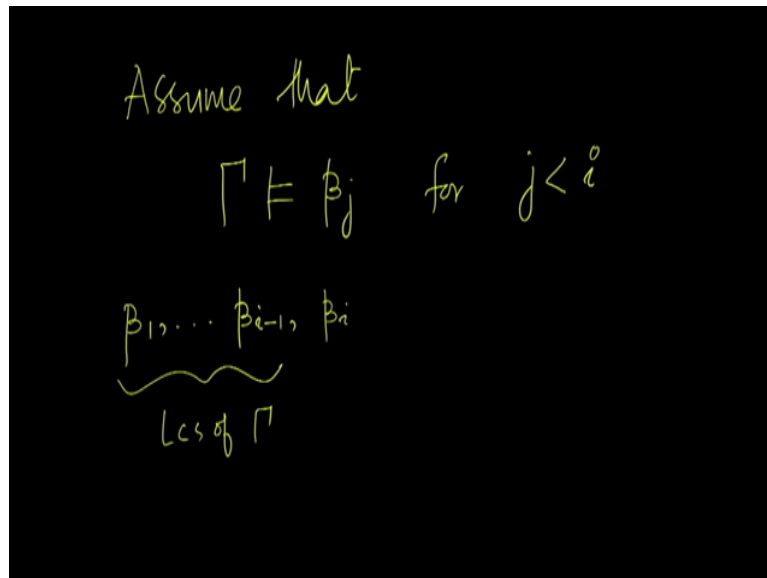 Assume that
Γ ⊨ βj for j < i
β1, ... βi-1, βi
Lcs of Γ